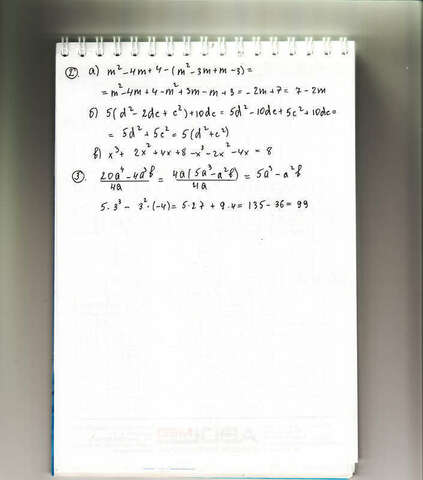 ② а) m² - 4m + 4 - (m² - 3m + m - 3) =
= m² - 4m + 4 - m² + 3m - m + 3 = - 2m + 7 = 7 - 2m
б) 5(d² - 2dc + c²) + 10dc = 5d² - 10dc + 5c² + 10dc =
= 5d² + 5c² = 5(d² + c²)
в) x³ + 2x² + 4x + 8 - x³ - 2x² - 4x = 8
③. (20a⁴ - 4a³b)/4a = 4a(5a³ - a²b)/4a = 5a³ - a²b
5·3³ - 3²·(-4) = 5·27 + 9·4 = 135 - 36 = 99